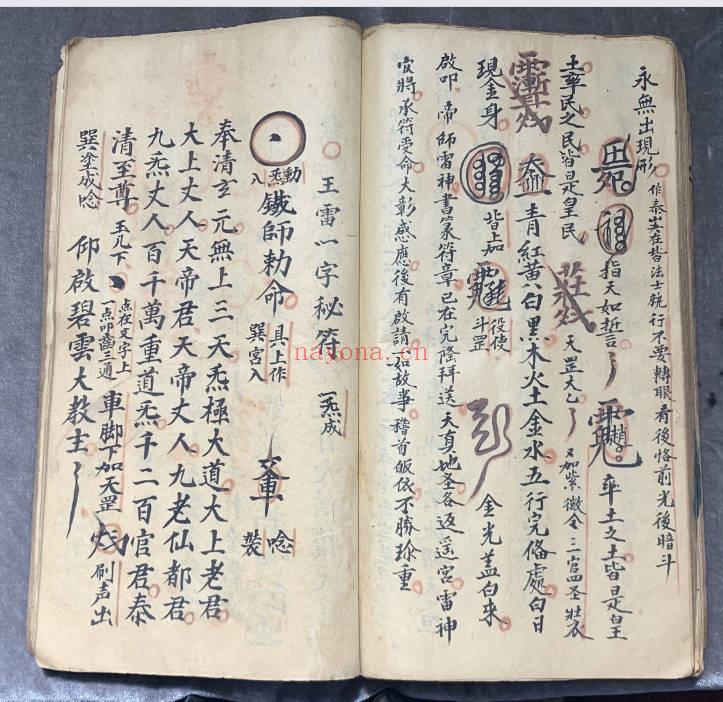 永無出現形 作泰山在皆法士執行不要轉眼看後恪前光後暗斗
指天如誓言 率土之土皆是皇
土率民之民皆是皇民 天罡大乙 又加紫微全三官四圣壯衣
青紅黃白黑木火土金水五行完俻處白日
現金身 皆上病 役使斗罡 金光盖白来
啟叩 帝師雷神書篆符章已在完隂拜送天真地圣各返遥宮雷神
官將承符受命大彰感應後有啟請如故事稽首皈依不勝珎重
王雷一字秘符 一炁成
動炁八 鐵師勅命 具上作巽宮入 唸裝
奉清玄元無上三天炁極大道大上老君
大上丈人天帝君天帝丈人九老仙都君
九炁丈人百千萬重道炁千二百官君泰
清至尊 玉几下 点在文字上一点叩齒三通 車脚下加天罡 刷声出
巽塗成唸 仰啟碧雲大教主
nayona.cn